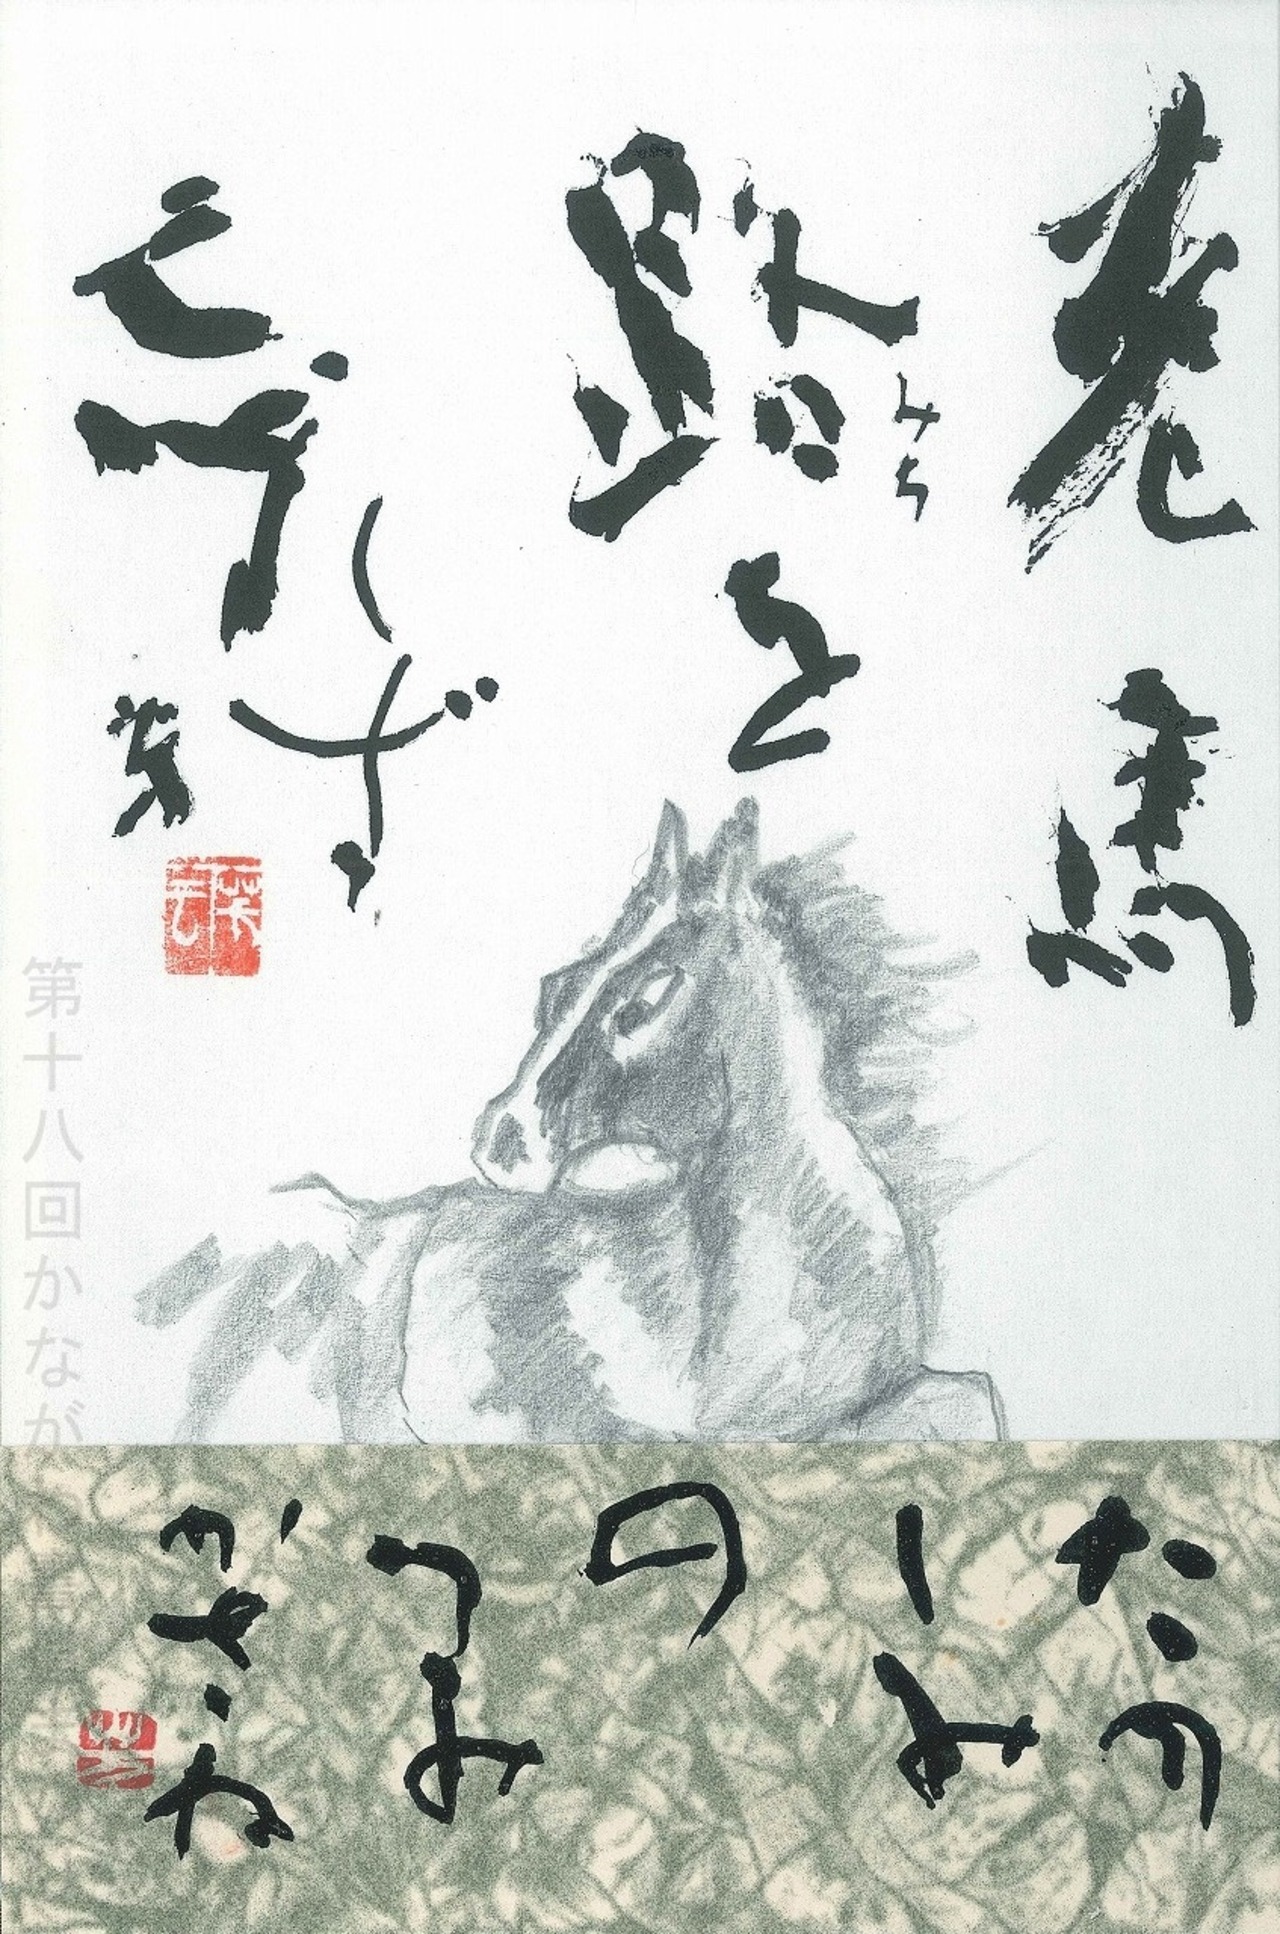 老馬
路を
みち
忘れず
たの
しみ
の
つみ
かさね
第十八回かなが